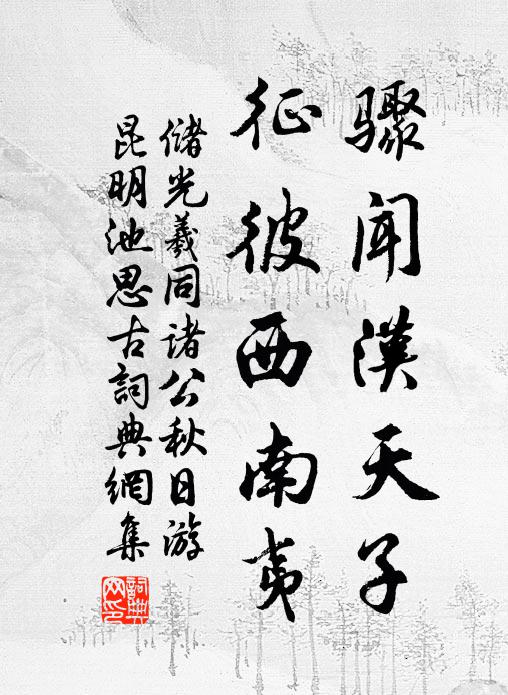 驟闻漢天子
征彼西南夷
儲光羲同诸公秋日游
昆明池思古詞典網集